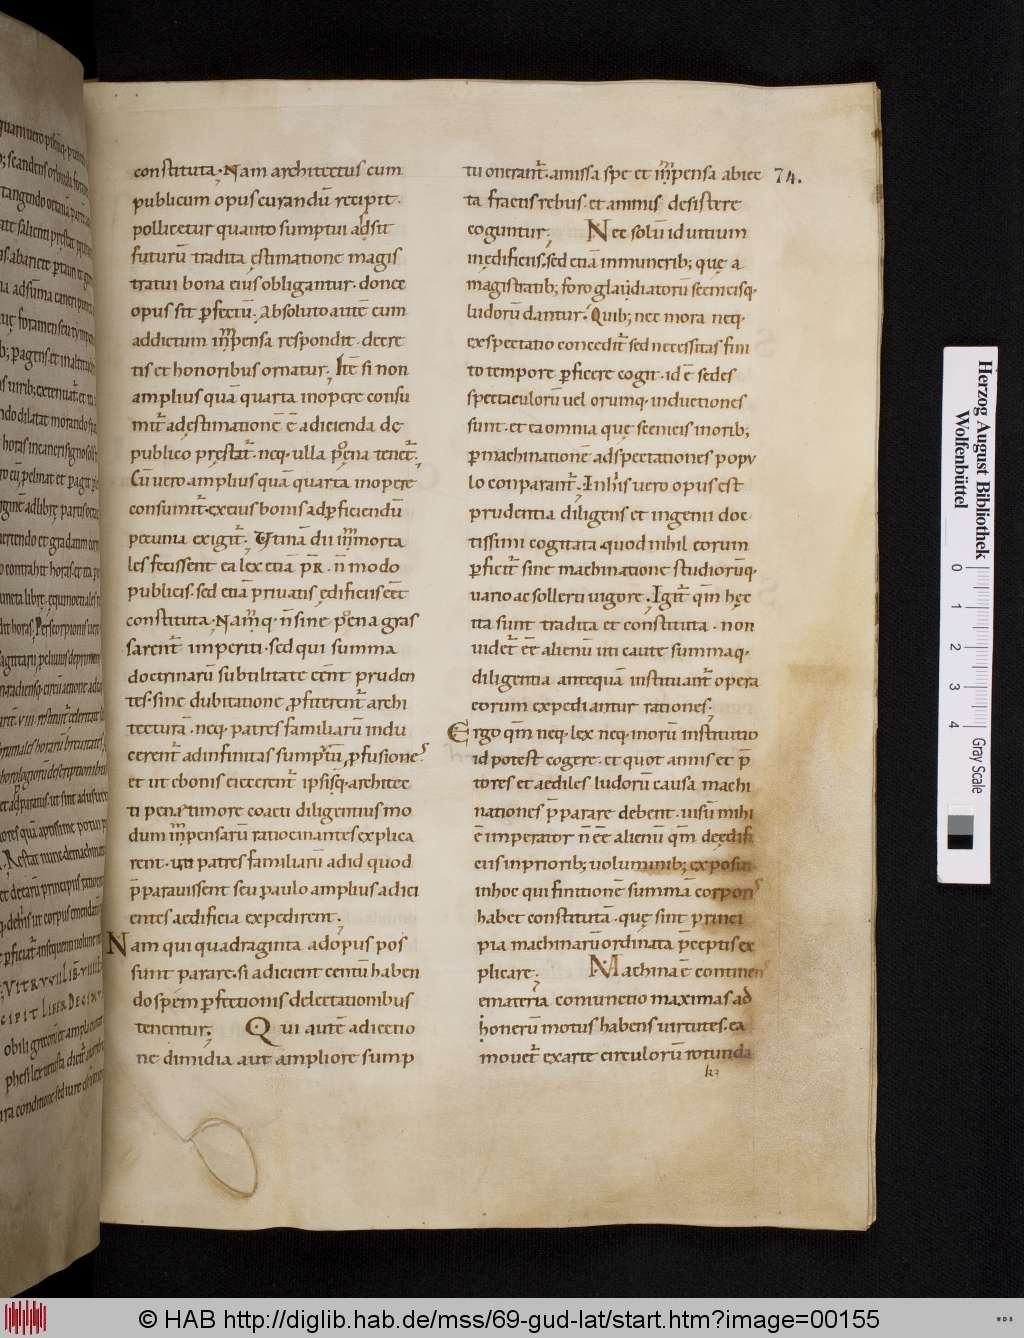 constituta. Nam architectus cum
publicum opus curandū recipit.
pollicetur quanto sumptui adsit
futurū tradita ęstimatione magis
tratui bona eius obligantur. donec
opus sit pfectū. Absoluto autē cum
ad dictum impensa respondit. decre
tis et honoribus ornatur. Itē si non
amplius quā quarta in opere consu
mit̄ ad ęstimationē ē adicienda dę
publico prestat̄. neq· ulla pęna tenet̄.
Cū uero amplius quā quarta in opere
consumit̄. ex eius bonis ad pficiendū
pecunia exigit̄. Utinā dii immorta
les fecissent ea lex etiā p̄r. n̄ modo
publicis. sed etiā priuatis ędificiis eēt
constituta. Namq· n̄ sine pęna gras
sarent̄ imperiti. sed qui summa
doctrinarū subtilitate eēnt pruden
tes. sine dubitatione pfiterent̄ archi
tectura. neq· patres familiarū indu
cerent̄ ad infinitas sumptuū pfusiones
et ut e bonis eicerent̄ ipsisq· architec
ti penę timore coacti diligentius mo
dum impensarū ratiocinantes explica
rent. uti patres familiarū ad id quod
p̄parauissent seu paulo amplius adici
entes aedificia expedirent.
Nam qui quadraginta ad opus pos
sunt parare. si adicient centū haben
do spem pfectionis delectationibus
tenentur. Qui autē adiectio
ne dimidia aut ampliore sump
tu onerant̄. amissa spe et impensa abiec
74.
ta fractis rebus. et animis desistere
coguntur. Nec solū id uitium
in ędificiis. sed etiā in munerib; quę a
magistratib; foro gladiatorū scenicisq·
ludorū dantur. Quib; nec mora neq·
exspectatio concedit̄ sed necessitas fini
to tempore pficere cogit. id ē sedes
spectaculorū uel orumq· inductiones
sunt. et ea omnia quę scenicis morib;
p machinationē ad spectationes popu
lo conparant̄. In his uero opus est
prudentia diligens et ingenii doc
tissimi cogitata. quod nihil eorum
pficit̄ sine machinatione studiorūq·
uario ac sollerti uigore. Igit̄ qm̄ hęc
ita sunt tradita et constituta. non
uidet̄ eē alienū uti caute summaq·
diligentia antequā instituant̄ opera
eorum expediantur rationes.
Ergo qm̄ neq· lex neq· morū institutio
id potest cogere. et quot annis et p̄
tores et aediles ludorū causa machi
nationes p̄parare debent. uisū mihi
ē imperator n̄ eē alienū qm̄ de ędifi
ciis in priorib; uoluminib; exposui
in hoc qui finitionē summā corporis
habet constitutā. quę sint princi
pia machinarū ordinata p̄ceptis ex
plicare. Machina ē continens
e materia coniunctio maximas ad
honerū motus habens uirtutes. ea
mouet̄ ex arte circulorū rotunda
Herzog August Bibliothek
Wolfenbüttel
0 1 2 3 4 Gray Scale
© HAB http://diglib.hab.de/mss/69-gud-lat/start.htm?image=00155